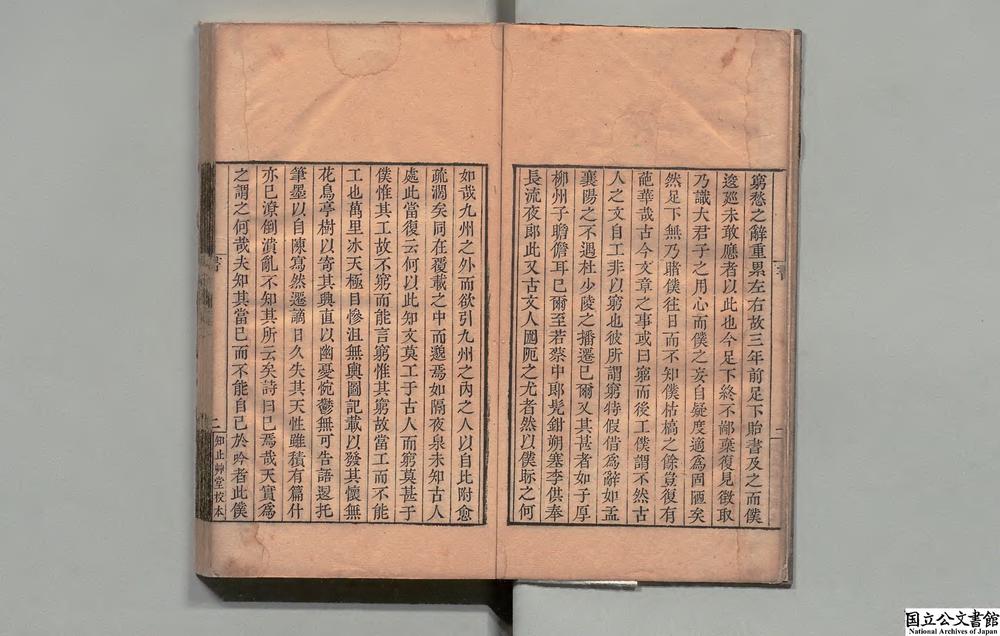 窮愁之辭重累左右故三年前足下貽書及之而僕
逡廵未敢應者以此也今足下終不鄙棄復見徵取
乃識大君子之用心而僕之妄自疑度適為固陋矣
然足下無乃睹僕往日而不知僕枯槁之餘豈復有
葩華哉古今文章之事或曰窮而後工僕謂不然古
人之文自工非以窮也彼所謂窮特假借為辭如孟
襄陽之不遇杜少陵之播遷已爾又其甚者如子厚
柳州子瞻儋耳已爾至若蔡中郎髡鉗朔塞李供奉
長流夜郎此又古文人困阨之尤者然以僕眎之何
如哉九州之外而欲引九州之內之人以自比附愈
疏濶矣同在覆載之中而邈焉如隔夜泉未知古人
處此當復云何以此知文莫工于古人而窮莫甚于
僕惟其工故不窮而能言窮惟其窮故當工而不能
工也萬里冰天極目慘沮無輿圖記載以發其懷無
花鳥亭樹以寄其興直以幽憂惋鬱無可告語退托
筆墨以自陳寫然遷謫日久失其天性雖積有篇什
亦已潦倒潰亂不知其所云矣詩曰已焉哉天實為
之謂之何哉夫知其當已而不能自已於吟者此僕
書
二
知止艸堂校本
国立公文書館
National Archives of Japan